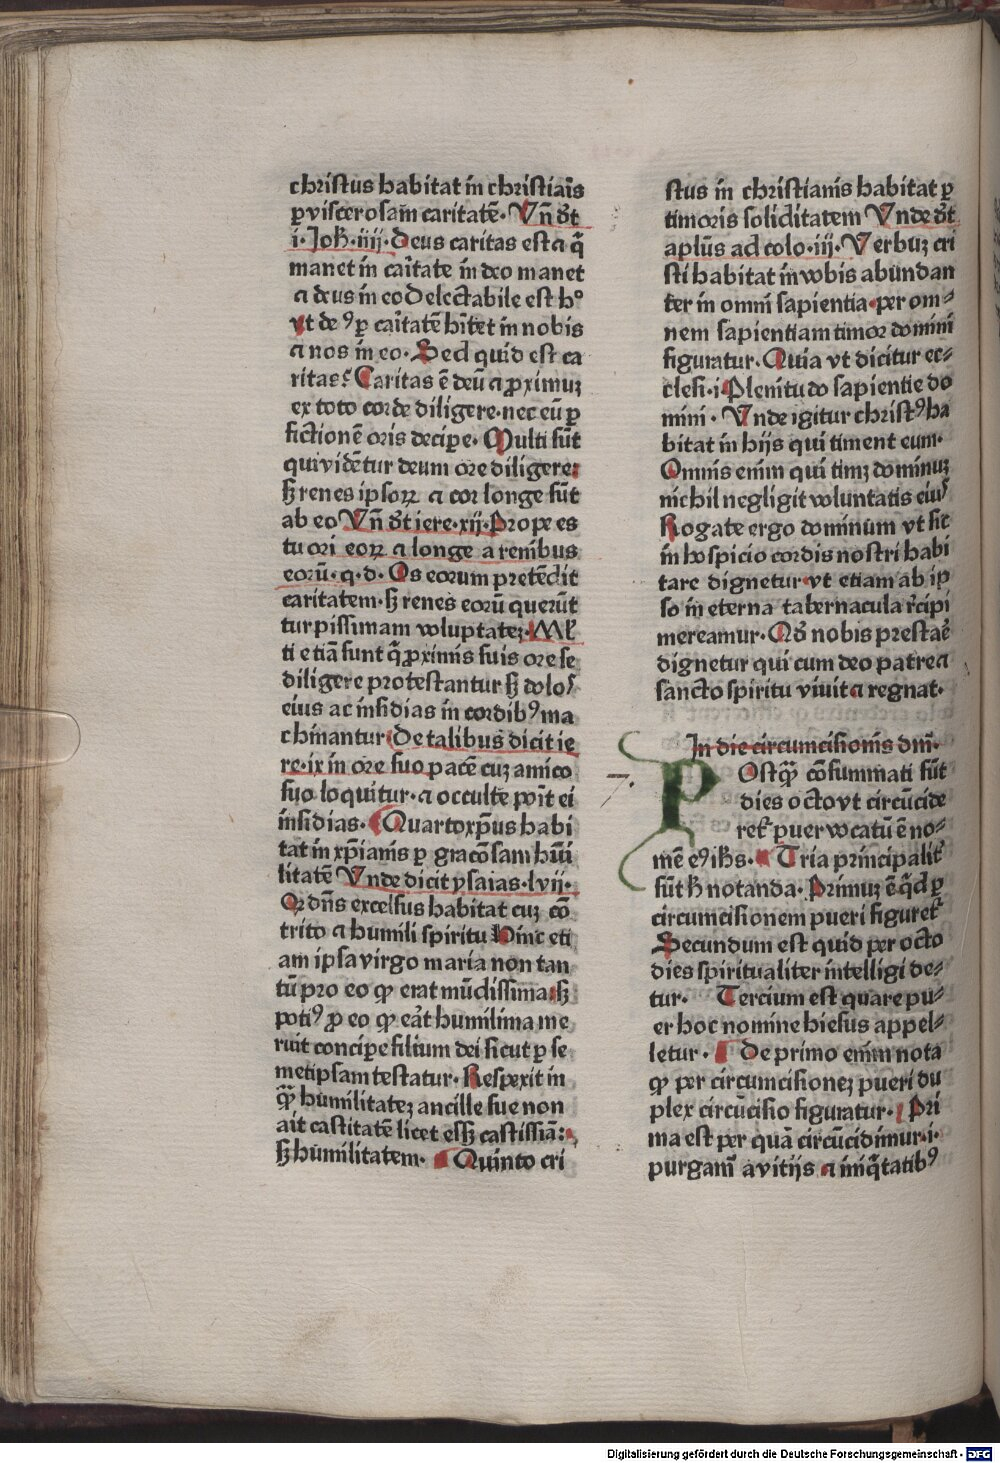 christus habitat in christiaīs
ꝑ viscerosam caritatē. Vn̄ dr̄t
i. Joħ. iiij. Deus caritas est ⁊ q̄
manet in cāitate in deo manet
⁊ deus in eo Delectabile est h°
vt de⁹ ꝑ cāitatē hītet in nobis
⁊ nos in eo. Sed quid est ca
ritas? Caritas ē deū ⁊ ꝓximuꝫ
ex toto corde diligere. nec eū ꝑ
fictionē oris deciꝑe. Multi sūt
qui vidētur deum ore diligere:
sꝫ renes ipsoꝝ ⁊ cor longe sūt
ab eo Vn̄ dr̄t iere. xij. Prope es
tu ori eoꝝ ⁊ longe a renibus
eorū. q. d. Os eorum pretēdit
caritatem. sꝫ renes eorū querūt
turpissimam voluptateꝫ. Ml̄
ti etiā sunt q̄ ꝓximis suis ore se
diligere protestantur sꝫ dolos
eius ac insidias in cordib⁹ ma
chinantur De talibus dicit ie
re. ix in ore suo pacē cuꝫ amico
suo loquitur. ⁊ occulte poīt ei
insidias. Quarto xp̄us habi
tat in xp̄ianis ꝑ gracōsam hūi
litatē Vnde dicit ysaias. lvij.
Qr dn̄s excelsus habitat cuꝫ cō
trito ⁊ humili spiritu Hinc eti
am ipsa virgo maria non tan
tū pro eo ꝙ erat mūdissima: sꝫ
poti⁹ ꝓ eo ꝙ eāt humilima me
ruit conciꝑe filium dei sicut ꝑ se
metipsam testatur. Respexit in
qͫ humilitateꝫ ancille sue non
ait castitatē licet essꝫ castissiā:
sꝫ humilitatem. Quinto cri
stus in christianis habitat ꝑ
timoris soliditatem Vnde dr̄t
aplūs ad colo. iij. Verbuꝫ cri
sti habitat in vobis abundan
ter in omni sapientia. per om⸗
nem sapientiam timor domini
figuratur. Quia vt dicitur ec⸗
clesi. i. Plenitudo sapientie do
mini. Vnde igitur christ⁹ ha
bitat in hijs qui timent eum.
Omnis enim qui timꝫ dominuꝫ
nichil negligit voluntatis eius
Rogate ergo dominum vt sic
in hospicio cordis nostri habi
tare dignetur. vt etiam ab ip
so in eterna tabernacula r̄cipi
mereamur. Qd̄ nobis prestare
dignetur qui cum deo patre ⁊
sancto spiritu viuit ⁊ regnat.
In die circumcisionis dn̄i.
7.
POstqͫ cōsummati sūt
dies octo vt circūcide
ret᷑ puer vocatū ē no⸗
mē e⁹ ihs. Tria principalit᷑
sūt h̄ notanda. Primuꝫ ē qͥd ꝑ
circumcisionem pueri figuret᷑
Secundum est quid per octo
dies spiritualiter intelligi de⸗
tur. Tercium est quare pu⸗
er hoc nomine hiesus appel⸗
letur. De primo enim nota
ꝙ per circumcisioneꝫ pueri du
plex circūcisio figuratur. Pri
ma est per quā circūcidimur. i.
purgam̄ a vitijs ⁊ iniq̄tatib⁹
Digitalisierung gefördert durch die Deutsche Forschungsgemeinschaft - DFG